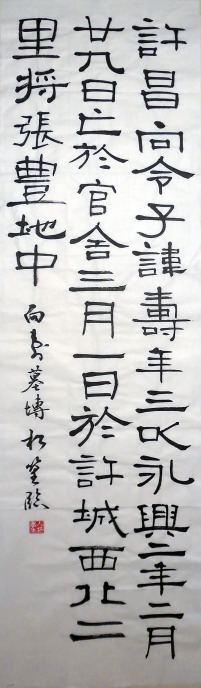 許昌向令子諱壽年三以永興二年二月
廿八日亡於官舍三月一日於許城西北二
里將張豐地中
向壽墓塼 臨